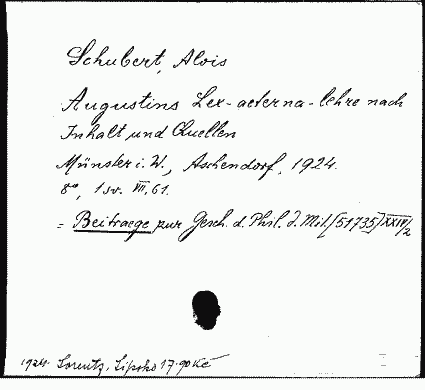 Schubert, Alois
Augustins Lex-aeterna-lehre nach
Inhalt und Quellen
Münster i. W., Aschendorf, 1924.
8°, 1 sv. VII, 61.
= Beitraege zur Gesch. d. Phil. d. Mit. [51735] XXIV/2
1924. Lorentz, Lipsko 17.90 Kč